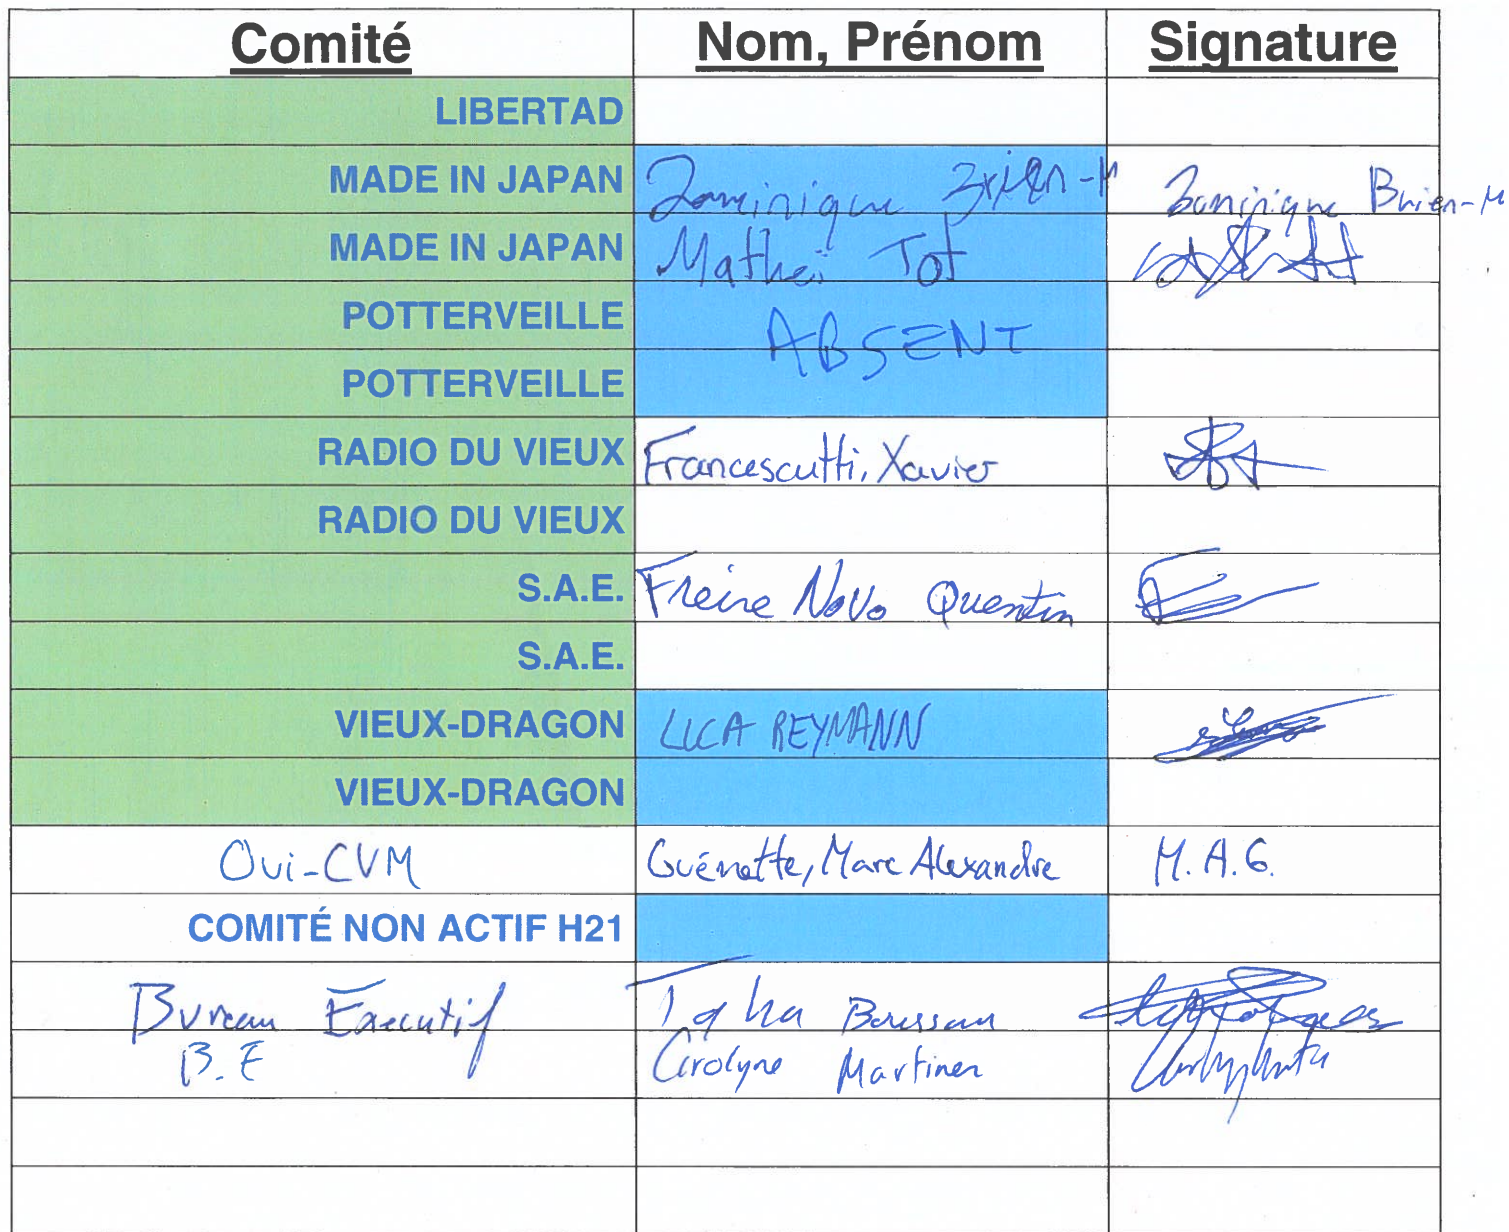 Comité Nom, Prénom Signature
LIBERTAD
MADE IN JAPAN Dominique Brien-M Dominique Brien-M
MADE IN JAPAN Matheï Tot
POTTERVEILLE ABSENT
POTTERVEILLE
RADIO DU VIEUX Francescutti, Xavier
RADIO DU VIEUX
S.A.E. Freire Novo Quentin
S.A.E.
VIEUX-DRAGON LUCA REYMANN
VIEUX-DRAGON
Oui-CVM Guénette, Marc Alexandre M.A.G.
COMITÉ NON ACTIF H21
Bureau Executif
B.E Carolyne Martinez